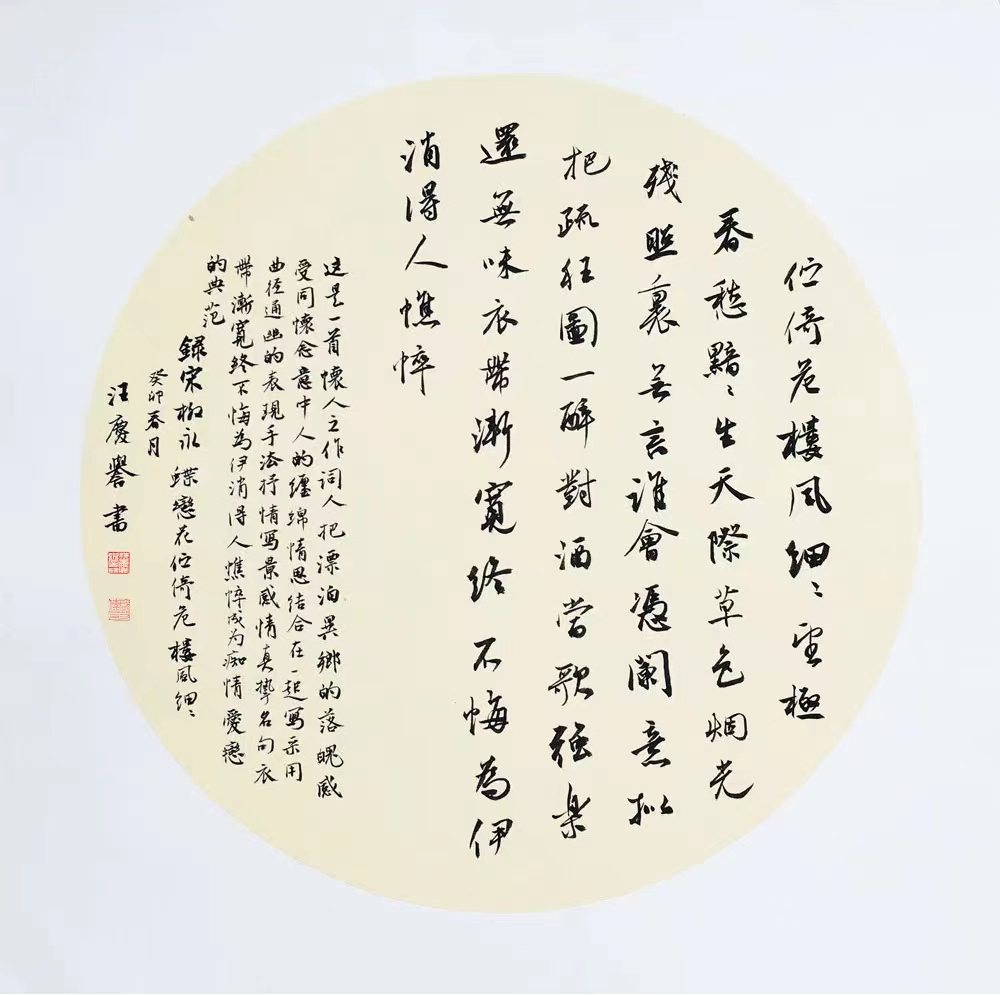 伫倚危樓風細〻望極
春愁黯〻生天際草色烟光
殘照裏無言誰會憑闌意擬
把疏狂圖一醉對酒當歌強樂
還無味衣帶漸寬終不悔為伊
消得人憔悴
這是一首懷人之作詞人把漂泊異鄉的落魄感
受同懷念意中人的纏綿情思結合在一起寫采用
曲徑通幽的表現手法抒情寫景感情真摯名句衣
帶漸寬終不悔為伊消得人憔悴成為痴情愛戀
的典范
錄宋柳永蝶戀花伫倚危樓風細〻
癸卯春月
汪慶譽書